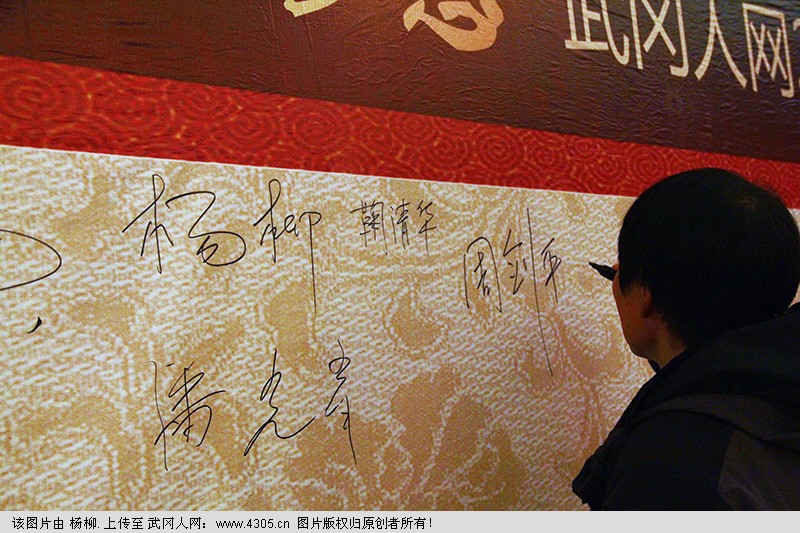 武冈人网
杨柳 鞠清华
周剑平
潘光
该图片由 杨柳. 上传至 武冈人网： www.4305.cn 图片版权归原创者所有！